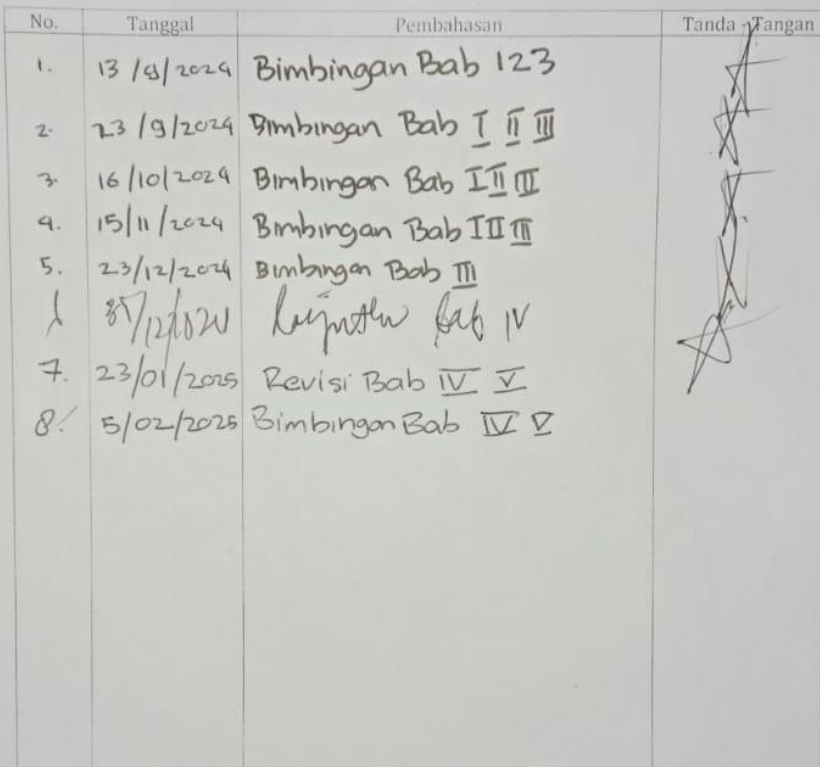 No. Tanggal Pembahasan Tanda Tangan
1. 13 /8/2024 Bimbingan Bab 123
2. 23 /9/2024 Bimbingan Bab I II III
3. 16/10/2024 Bimbingan Bab I II III
4. 15/11/2024 Bimbingan Bab I II III
5. 23/12/2024 Bimbingan Bab III
Bab IV
7. 23/01/2025 Revisi Bab IV V
8. 5/02/2025 Bimbingan Bab IV V